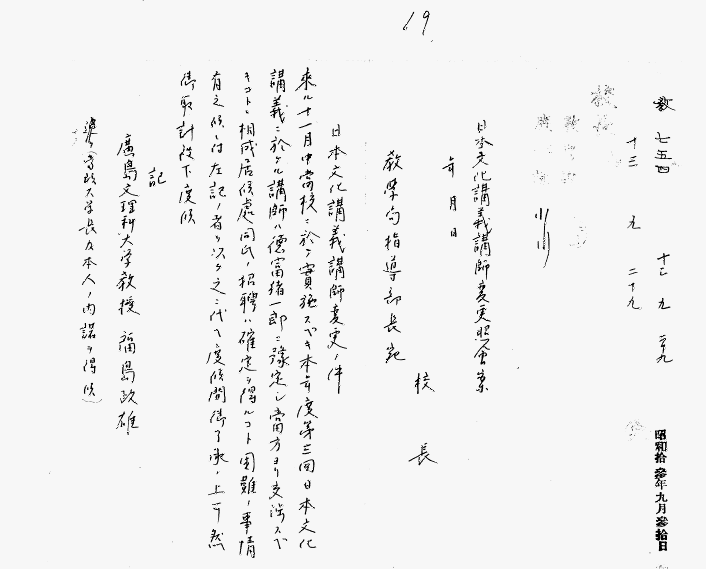 19
教 七五四
十三 九 二九
十三 九 二十九
昭和拾参年九月参拾日
日本文化講義講師変更照会案
年 月 日
校 長
教學局指導部長宛
日本文化講義講師変更ノ件
来ル十一月中當校ニ於テ實施スベキ本年度第三回日本文化
講義ニ於ケル講師ハ德富猪一郎ニ豫定シ當方ヨリ交渉スベ
キコトニ相成居候處同氏ノ招聘ハ確定ヲ得ルコト困難ノ事情
有之候ニ付左記ノ者ヲ以テ之ニ代ヘ度候間御了承ノ上可然
御取計被下度候
記
廣島文理科大学教授 福島政雄
大学長及本人ノ内諾ヲ得候）